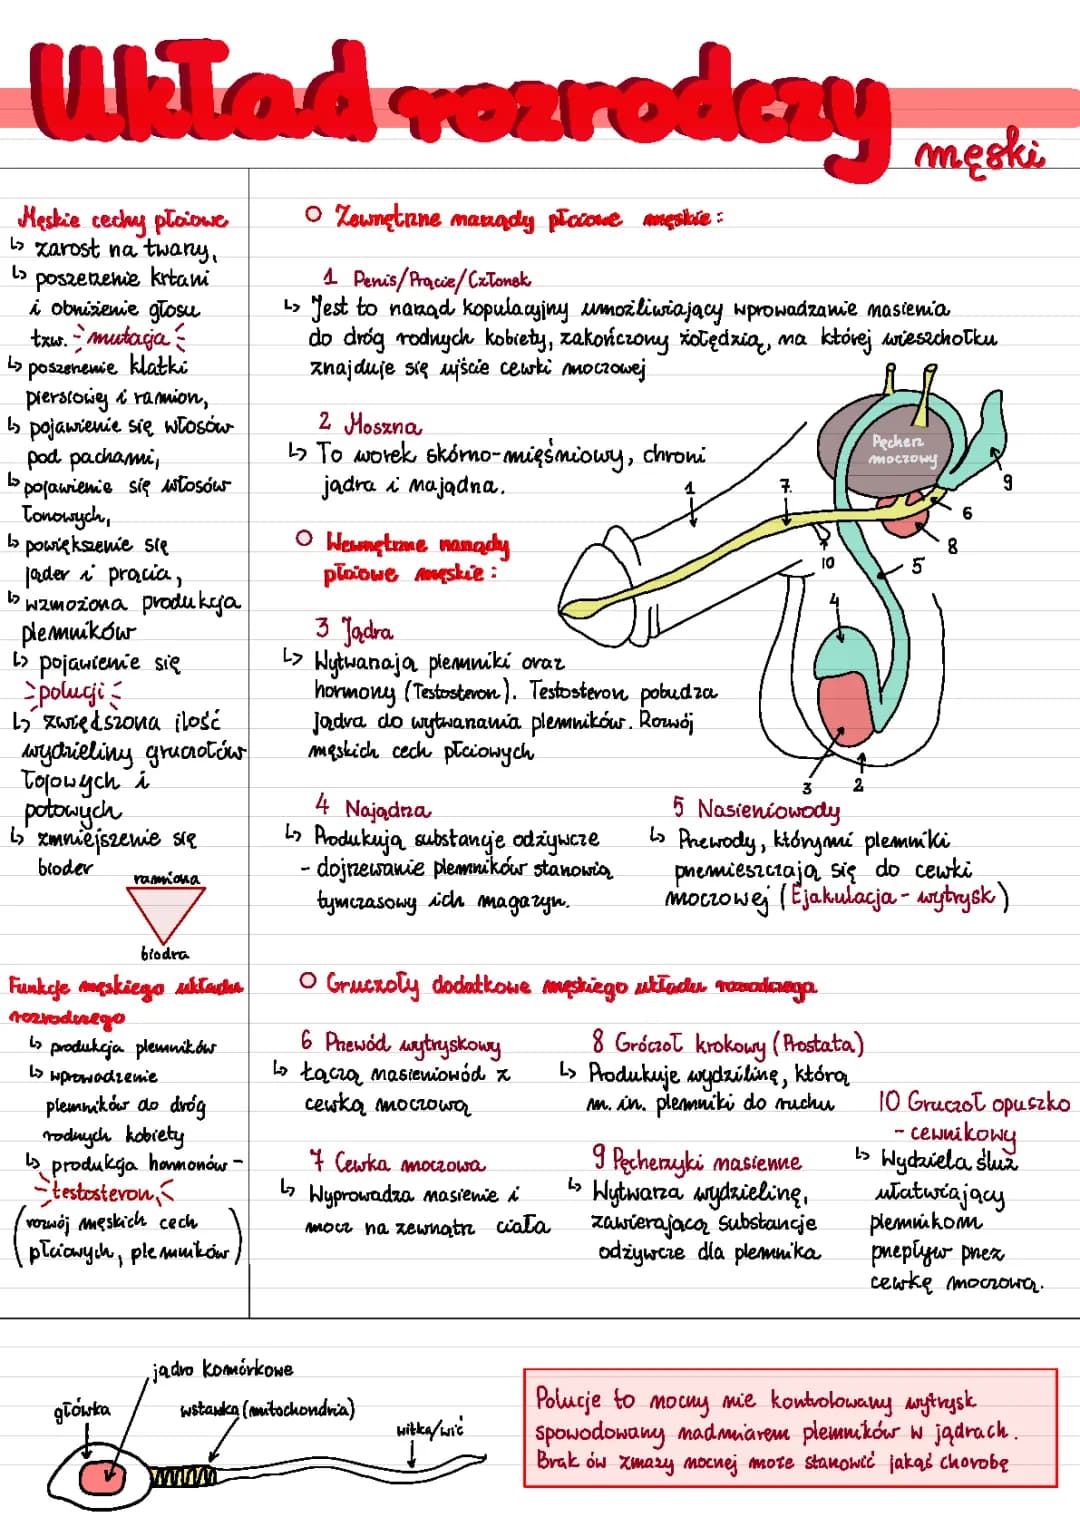 Układ rozrodczy
męski
Męskie cechy płciowe
↳ zarost na twarzy,
↳ poszerzenie krtani
i obniżenie głosu
tzw. mutacja
↳ poszerzenie klatki
piersiowej i ramion,
↳ pojawienie się włosów
pod pachami,
↳ pojawienie się włosów
łonowych,
↳ powiększenie się
jąder i prącia,
↳ wzmożona produkcja
plemników
↳ pojawienie się
polucji
↳ zwiędszona ilość
wydzieliny gruczołów
łojowych i
potowych
↳ zmniejszenie się
bioder
ramiona
biodra
Funkcje męskiego układu
rozrodczego
↳ produkcja plemników
↳ wprowadzenie
plemników do dróg
rodnych kobiety
↳ produkcja hormonów -
testosteron,
(rozwój męskich cech
płciowych, plemników)
O Zewnętrzne narządy płciowe męskie:
1 Penis/Prącie/Członek
↳ Jest to narząd kopulacyjny umożliwiający wprowadzanie nasienia
do dróg rodnych kobiety, zakończony żołędzią, na której wieszchołku
znajduje się ujście cewki moczowej
2 Moszna
↳ To worek skórno-mięśniowy, chroni
jądra i najądrza.
O Wewnętrzne narządy
płciowe męskie:
3 Jądra
↳ Wytwarzają plemniki oraz
hormony (Testosteron). Testosteron pobudza
jądra do wytwarzania plemników. Rozwój
męskich cech płciowych
Pęcherz
moczowy
1
7.
9
6
8
10
5
4
3
2
4 Najądrza
↳ Produkują substancje odżywcze
- dojrzewanie plemników stanowią
tymczasowy ich magazyn.
5 Nasieniowody
↳ Przewody, którymi plemniki
przemieszczają się do cewki
moczowej (Ejakulacja - wytrysk)
O Gruczoły dodatkowe męskiego układu rozrodczego
6 Przewód wytryskowy
↳ Łączą nasieniowód z
cewką moczową
7 Cewka moczowa
↳ Wyprowadza nasienie i
mocz na zewnątrz ciała
8 Gróczoł krokowy (Prostata)
↳ Produkuje wydzilinę, którą
m. in. plemniki do ruchu
9 Pęcherzyki nasienne
↳ Wytwarza wydzielinę,
zawierającą substancje
odżywcze dla plemnika
10 Gruczoł opuszko
- cewnikowy
↳ Wydziela śluz
ułatwiający
plemnikom
przepływ przez
cewkę moczową.
jądro komórkowe
główka
wstawka (mitochondria)
witka/wić
Polucje to nocny nie kontrolowany wytrysk
spowodowany nadmiarem plemników w jądrach.
Brak ów zmazy nocnej może stanowić jakąś chorobę